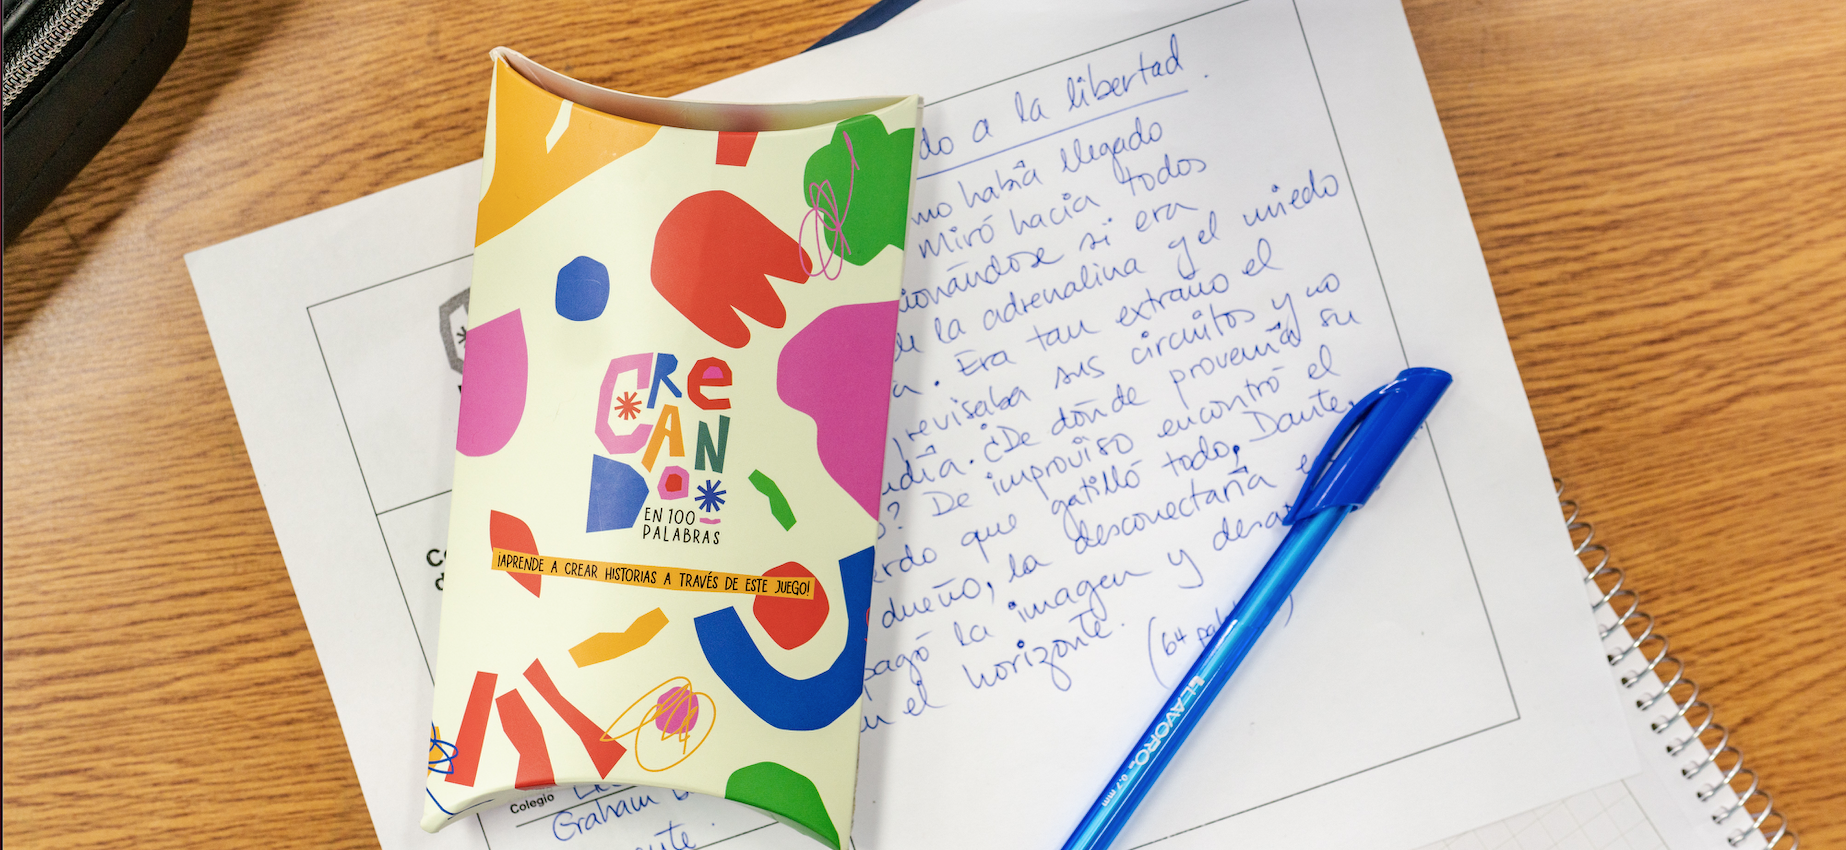 CREANDO
EN 100
PALABRAS
¡APRENDE A CREAR HISTORIAS A TRAVÉS DE ESTE JUEGO!
do a la libertad.
mo había llegado
miró hacia todos
ionándose si era
de la adrenalina y el miedo
a. Era tan extraño el
revisaba sus circuitos y no
udía. ¿De dónde provenía su
o? De improviso encontró el
erdo que gatilló todo. Dante,
dueño, la desconectaría e
pagó la imagen y desa
en el horizonte. (64 pal
LEAVORO 0.7 mm
Colegio
Graham
ente.